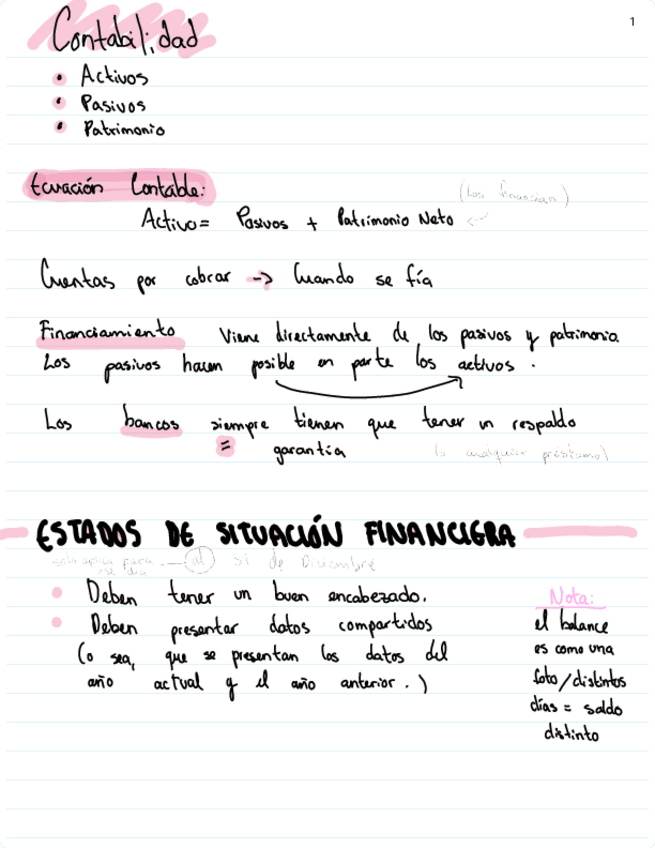 1
Contabilidad
• Activos
• Pasivos
• Patrimonio
Ecuación Contable:
(Los financian)
Activo = Pasivos + Patrimonio Neto ←
Cuentas por cobrar -> Cuando se fía
Financiamiento Viene directamente de los pasivos y patrimonio
Los pasivos hacen posible en parte los activos.
Los bancos siempre tienen que tener un respaldo
= garantía (o cualquier préstamo)
ESTADOS DE SITUACIÓN FINANCIERA
solo aplica para ese día — al 31 de Diciembre
• Deben tener un buen encabezado.
• Deben presentar datos compartidos
(o sea, que se presentan los datos del
año actual y el año anterior.)
Nota:
el balance
es como una
foto/distintos
días = saldo
distinto